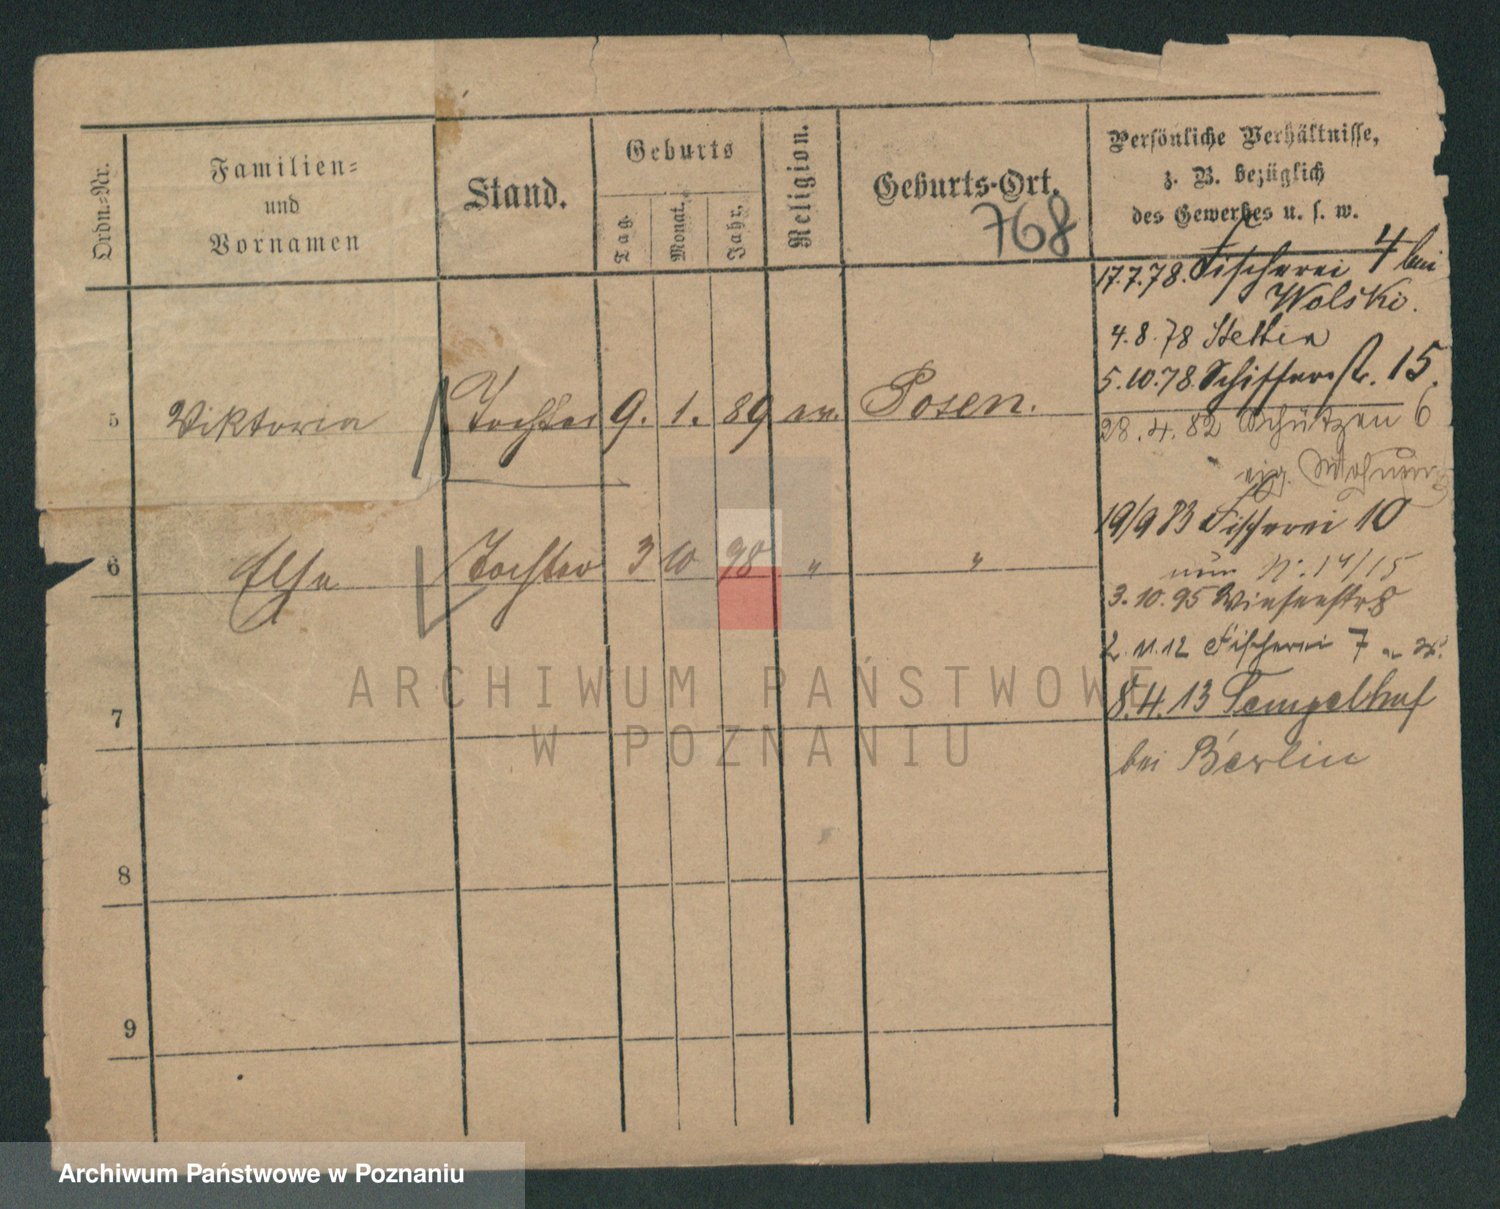 Ordn.-Nr.
Familien-
und
Vornamen
Stand.
Geburts
Tag.
Monat.
Jahr.
Religion.
Geburts-Ort.
768
Persönliche Verhältnisse,
z. B. bezüglich
des Gewerbes u. s. w.
17.7.78. Fischerei 4 bei
Wolski.
4.8.78 Stettin
5.10.78. Schifferstr. 15.
5 Viktoria Tochter 9. 1. 89 Posen.
28.4.82 Schützen 6
eig. Wohnung
19/9 83 Fischerei 10
6 Else Tochter 3 10 98 " "
nun N. 14/15
3.10.95 Wiesenstr 8
2.11.12 Fischerei 7
8.4.13 Tempelhof
bei Berlin
7
8
9
ARCHIWUM PAŃSTWOWE
W POZNANIU
Archiwum Państwowe w Poznaniu